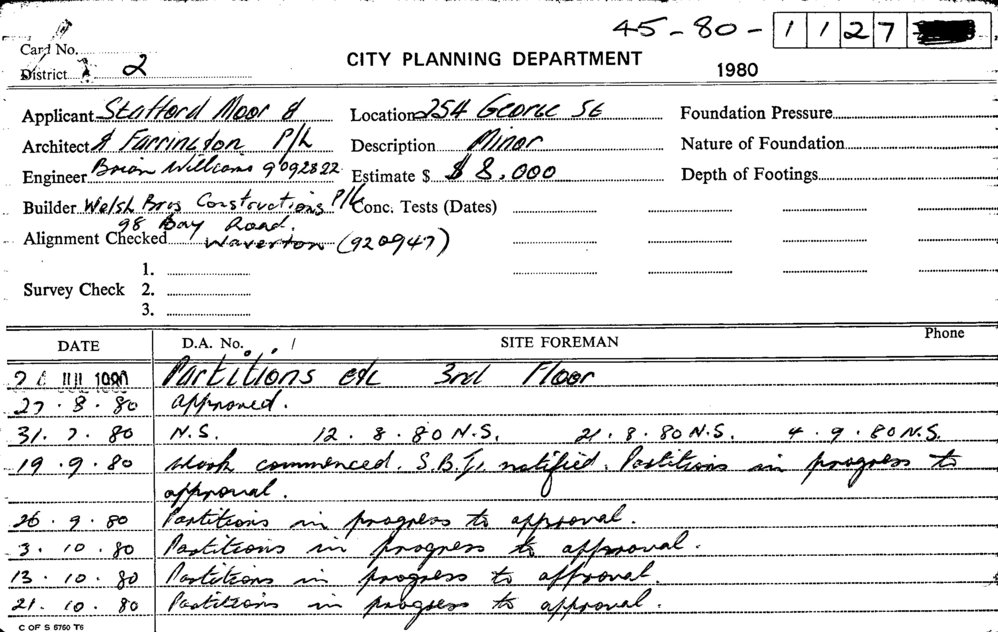 45-80-1127
Card No.
CITY PLANNING DEPARTMENT
1980
District 2
Applicant Stafford Moor & Location 254 George St Foundation Pressure
Architect & Farrington P/L Description Minor Nature of Foundation
Engineer Brian Williams 9092822 Estimate $ $ 8,000 Depth of Footings
Builder Welsh Bros Constructions P/L Conc. Tests (Dates)
98 Bay Road.
Alignment Checked Waverton (920947)
1.
Survey Check 2.
3.
DATE D.A. No. SITE FOREMAN Phone
Partitions etc 3rd Floor
27.8.80 approved.
31.7.80 N.S. 12.8.80 N.S. 21.8.80 N.S. 4.9.80 N.S.
19.9.80 Work commenced. S.B.I. notified. Partitions in progress to
approval.
26.9.80 Partitions in progress to approval.
3.10.80 Partitions in progress to approval.
13.10.80 Partitions in progress to approval.
21.10.80 Partitions in progress to approval.
C OF S 5760 T6